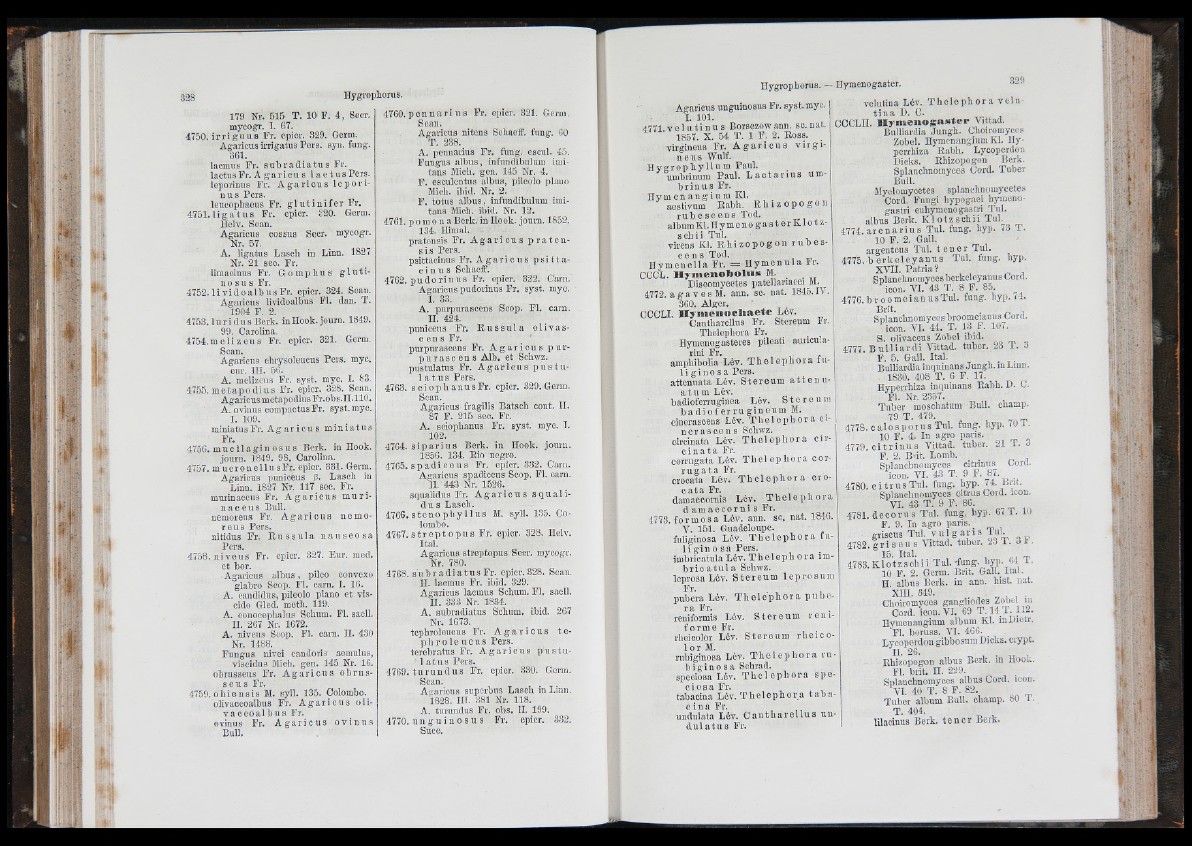 328
Hygrophorus.
179 Nr. 515 T. 10 F. 4, Secr.
mycogr. I. 67.
4750. irriguus Fr. epicr. 329. Germ.
Agaricus irrigatus Pers. syn. fung.
361.
lacmus Fr. subradiatus Fr.
lactus Fr. Agaricus laetus Pers.
leporinus Fr. Agaricus lepori-
nus Pers.
leucophaeus Fr. glutinifer Fr.
4751. ligatus Fr. epicr. 320. Germ.
Helv. Scan.
Agaricus cossus Secr. mycogr.
Nr. 57.
A. ligatus Lasch in Linn. 1827
Nr. 21 sec. Fr.
limacinus Fr. Gomphus gluti-
nosus Fr.
4752. lividoalbus Fr. epicr. 324. Scan.
Agaricus lividoalbus Fl. dan. T.
1904 F. 2.
4753. luridus Berk. in Hook. journ. 1849.
99. Carolina.
4754. melizeus Fr. epicr. 321. Germ.
Scan.
Agaricus chrysoleucus Pers. myc.
eur. III. 56.
A. melizeus Fr. syst. myc. I. 83.
4755. metapodius Fr. epicr. 328. Scan.
Agaricus metapodius Fr. obs. II. 110.
A. ovinus compactus Fr. syst. myc.
I. 109.
miniatus Fr. Agaricus miniatus
Fr.
4756. mucilaginosus Berk. in Hook.
journ. 1849. 98. Carolina.
4757. mucronellus Fr. epicr. 331. Germ.
Agaricus puniceus β. Lasch in
Linn. 1827 Nr. 117 sec. Fr.
murinaceus Fr. Agaricus muri-
naceus Bull.
nemoreus Fr. Agaricus nemo-
reus Pers.
nitidus Fr. Russula nauseosa
Pers.
4758. niveus Fr. epicr. 327. Eur. med.
et bor.
Agaricus albus, pileo convexo
glabro Scop. Fl. carn. I. 16.
A. candidus, pileolo plano et vis-
cido Gled. meth. 119.
A. conocephalus Schum. Fl. saell.
II. 267 Nr. 1672.
A. niveus Scop. Fl. carn. II. 430
Nr. 1488.
Fungus nivei candoris aemulus,
viscidus Mich. gen. 145 Nr. 16.
obrusseus Fr. Agaricus obrus-
seus Fr.
4759. ohiensis M. syll. 135. Colombo.
olivaceoalbus Fr. Agaricus oli-
vaceoalbus Fr.
ovinus Fr. Agaricus ovinus
Bull.
4760. pennarius Fr. epicr. 321. Germ.
Scan.
Agaricus nitens Schaeff. fung. 60
T. 238.
A. pennarius Fr. fung. escul. 45.
Fungus albus, infundibulum imi-
tans Mich. gen. 145 Nr. 4.
F. esculentus albus, pileolo plano
Mich. ibid. Nr. 2.
F. totus albus, infundibulum imi-
tans Mich. ibid. Nr. 12.
4761. pomona Berk. in Hook. journ. 1852.
134. Himal.
pratensis Fr. Agaricus praten-
sis Pers.
psittacinus Fr. Agaricus psitta-
cinus Schaeff.
4762. pudorinus Fr. epicr. 322. Carn.
Agaricus pudorinus Fr. syst. myc.
I. 33.
A. purpurascens Scop. Fl. carn.
II. 424.
puniceus Fr. Russula olivas-
cens Fr.
purpurascens Fr. Agaricus pur-
purascens Alb. et Schwz.
pustulatus Fr. Agaricus pustu-
latus Pers.
4763. sciophanus Fr. epicr. 329. Germ.
Scan.
Agaricus fragilis Batsch cont. II.
87 F. 215 sec. Fr.
A. sciophanus Fr. syst. myc. I.
102.
4764. siparius Berk. in Hook. journ.
1856. 134. Rio negro.
4765. spadiceus Fr. epicr. 332. Carn.
Agaricus spadiceus Scop. Fl. carn.
II. 443 Nr. 1526.
squalidus Fr. Agaricus squali-
dus Lasch.
4766. stenophyllus M. syll. 135. Co-
lombo.
4767. streptopus Fr. epicr. 328. Helv.
Ital.
Agaricus streptopus Secr. mycogr.
Nr. 780.
4768. subradiatus Fr. epicr. 328. Scan.
H. lacmus Fr. ibid. 329.
Agaricus lacmus Schum. Fl. saell.
II. 333 Nr. 1834.
A. subradiatus Schum. ibid. 267
Nr. 1673.
tephroleucus Fr. Agaricus te-
phroleucus Pers.
terebratus Fr. Agaricus pustu-
latus Pers.
4769. turundus Fr. epicr. 330. Germ.
Scan.
Agaricus superbus Lasch in Linn.
1828. III. 381 Nr. 118.
A. turundus Fr. obs. II. 199.
4770. unguinosus Fr. epicr. 332.
Suec.
Hygrophorus. — Hymenogaster.
329
Agaricus unguinosus Fr. syst. myc.
I. 101.
4771. velutinus Borsczow ann. sc. nat.
1857. X. 54 T. 1 F. 2. Ross.
virgineus Fr. Agaricus virgi-
neus Wulf.
Hygrophyllum Paul.
umbrinum Paul. Lactarius um-
brinus Fr.
Hymenangium Kl.
aestivum Rabh. Rhizopogon
rubescens Tod.
album Kl. Hymenogaster Klotz-
schii Tul.
virens Kl. Rhizopogon rubes-
cens Tod.
Hymenella Fr. = Hymenula Fr.
CCCL. Hymenobolus M.
Discomycetes patellariacei M.
4772. agaves M. ann. sc. nat. 1845. IV.
360. Alger.
CCCLI. Hymenochaete Lév.
Cantharellus Fr. Stereum Fr.
Thelephora Fr.
Hymenogasteres pileati auricula-
rini Fr.
amphibolia Lév. Thelephora fu-
liginosa Pers.
attenuata Lév. Stereum attenu-
atum Lév.
badioferruginea Lév. Stereum
badioferrugineum M.
cinerascens Lév. Thelephora ci-
nerascens Schwz.
circinata Lév. Thelephora cir-
cinata Fr.
corrugata Lév. Thelephora cor-
rugata Fr.
crocata Lév. Thelephora cro-
cata Fr.
damaecornis Lév. Thelephora
damaecornis Fr.
4773. formosa Lév. ann. sc. nat. 1846.
V. 151. Guadeloupe.
fuliginosa Lév. Thelephora fu-
liginosa Pers.
imbricatula Lév. Thelephora im-
bricatula Schwz.
leprosa Lév. Stereum leprosum
Fr.
pubera Lév. Thelephora pube-
ra Fr.
reniformis Lév. Stereum reni-
forme Fr.
rheicolor Lév. Stereum rheico-
lor M.
rubiginosa Lév. Thelephora ru-
biginosa Schrad.
speciosa Lév. Thelephora spe-
ciosa Fr.
tabacina Lév. Thelephora taba-
cina Fr.
undulata Lév. Cantharellus un-
dulatus Fr.
velutina Lév. Thelephora velu-
tina D. C.
CCCLII. Hymenogaster Vittad.
Bulliardia Jungh. Choiromyces
Zobel. Hymenangium Kl. Hy-
perrhiza Rabh. Lycoperdon
Dicks. Rhizopogon Berk.
Splanchnomyces Cord. Tuber
Bull.
Myelomycetes splanchnomycetes
Cord. Fungi hypogaei hymeno-
gastri euhymenogastri Tul.
albus Berk. Klotzschii Tul.
4774. arenarius Tul. fung. hyp. 73 T.
10 F. 2. Gall.
argenteus Tul. tener Tul.
4775. berkeleyanus Tul. fung. hyp.
XVII. Patria?
Splanchnomyces berkeleyanus Cord.
icon. VI. 43 T. 8 F. 85.
4776. broomeianus Tul. fung. hyp. 74.
Brit.
Splanchnomyces broomeianus Cord.
icon. VI. 44. T. 13 F. 107.
S. olivaceus Zobel ibid.
4777. Bulliardi Vittad. tuber. 23 T. 3
F. 5. Gall. Ital.
Bulliardia inquinans Jungh. in Linn.
1830. 408 T. 6 F. 17.
Hyperrhiza inquinans Rabh. D. C.
Fl. Nr. 2357.
Tuber moschatum Bull. champ.
79 T. 479.
4778. calosporus Tul. fung. hyp. 70 T.
10 F. 4. In agro paris.
4779. citrinus Vittad. tuber. 21 T. 3
F. 2. Brit. Lomb.
Splanchnomyces citrinus Cord.
icon. VI. 43 T. 9 F. 87.
4780. citrus Tul. fung. hyp. 74. Brit.
Splanchnomyces citrus Cord. icon.
VI. 43 T. 9 F. 86.
4781. decorus Tul. fung. hyp. 67 T. 10
F. 9. In agro paris.
griseus Tul. vulgaris Tul.
4782. griseus Vittad. tuber. 23 T. 3 F.
15. Ital.
4783. Klotzschii Tul. fung. hyp. 64 T.
10 F. 2. Germ. Brit. Gall. Ital.
H. albus Berk. in ann. hist. nat.
XIII. 349.
Choiromyces gangliodes Zobel in
Cord. icon. VI, 69 T. 14 T. 112.
Hymenangium album Kl. in Dietr.
Fl. boruss. VI. 466.
Lycoperdon gibbosum Dicks. crypt.
II. 26.
Rhizopogon albus Berk. in Hook.
Fl. brit. II. 229.
Splanchnomyces albus Cord. icon.
VI. 40 T. 8 F. 82.
Tuber album Bull. champ. 80 T.
T. 404.
lilacinus Berk. tener Berk.